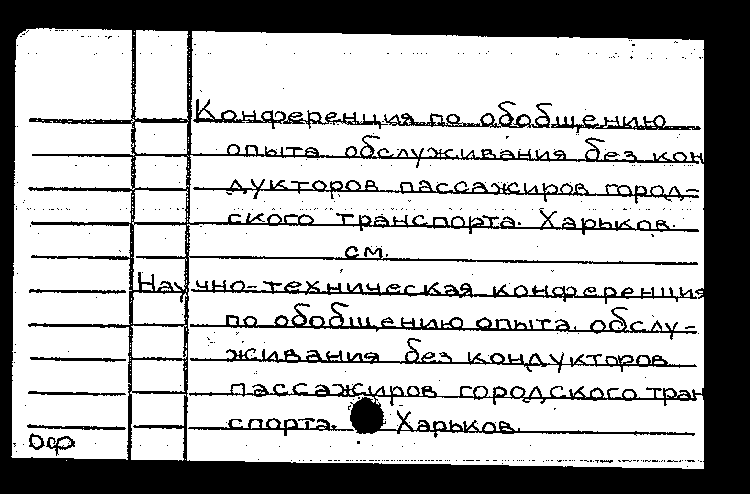 Конференция по обобщению
опыта обслуживания без кон
дукторов пассажиров город=
ского транспорта. Харьков.
см.
Научно-техническая конференция
по обобщению опыта обслу=
живания без кондукторов
пассажиров городского тран
спорта. Харьков.
ОФ